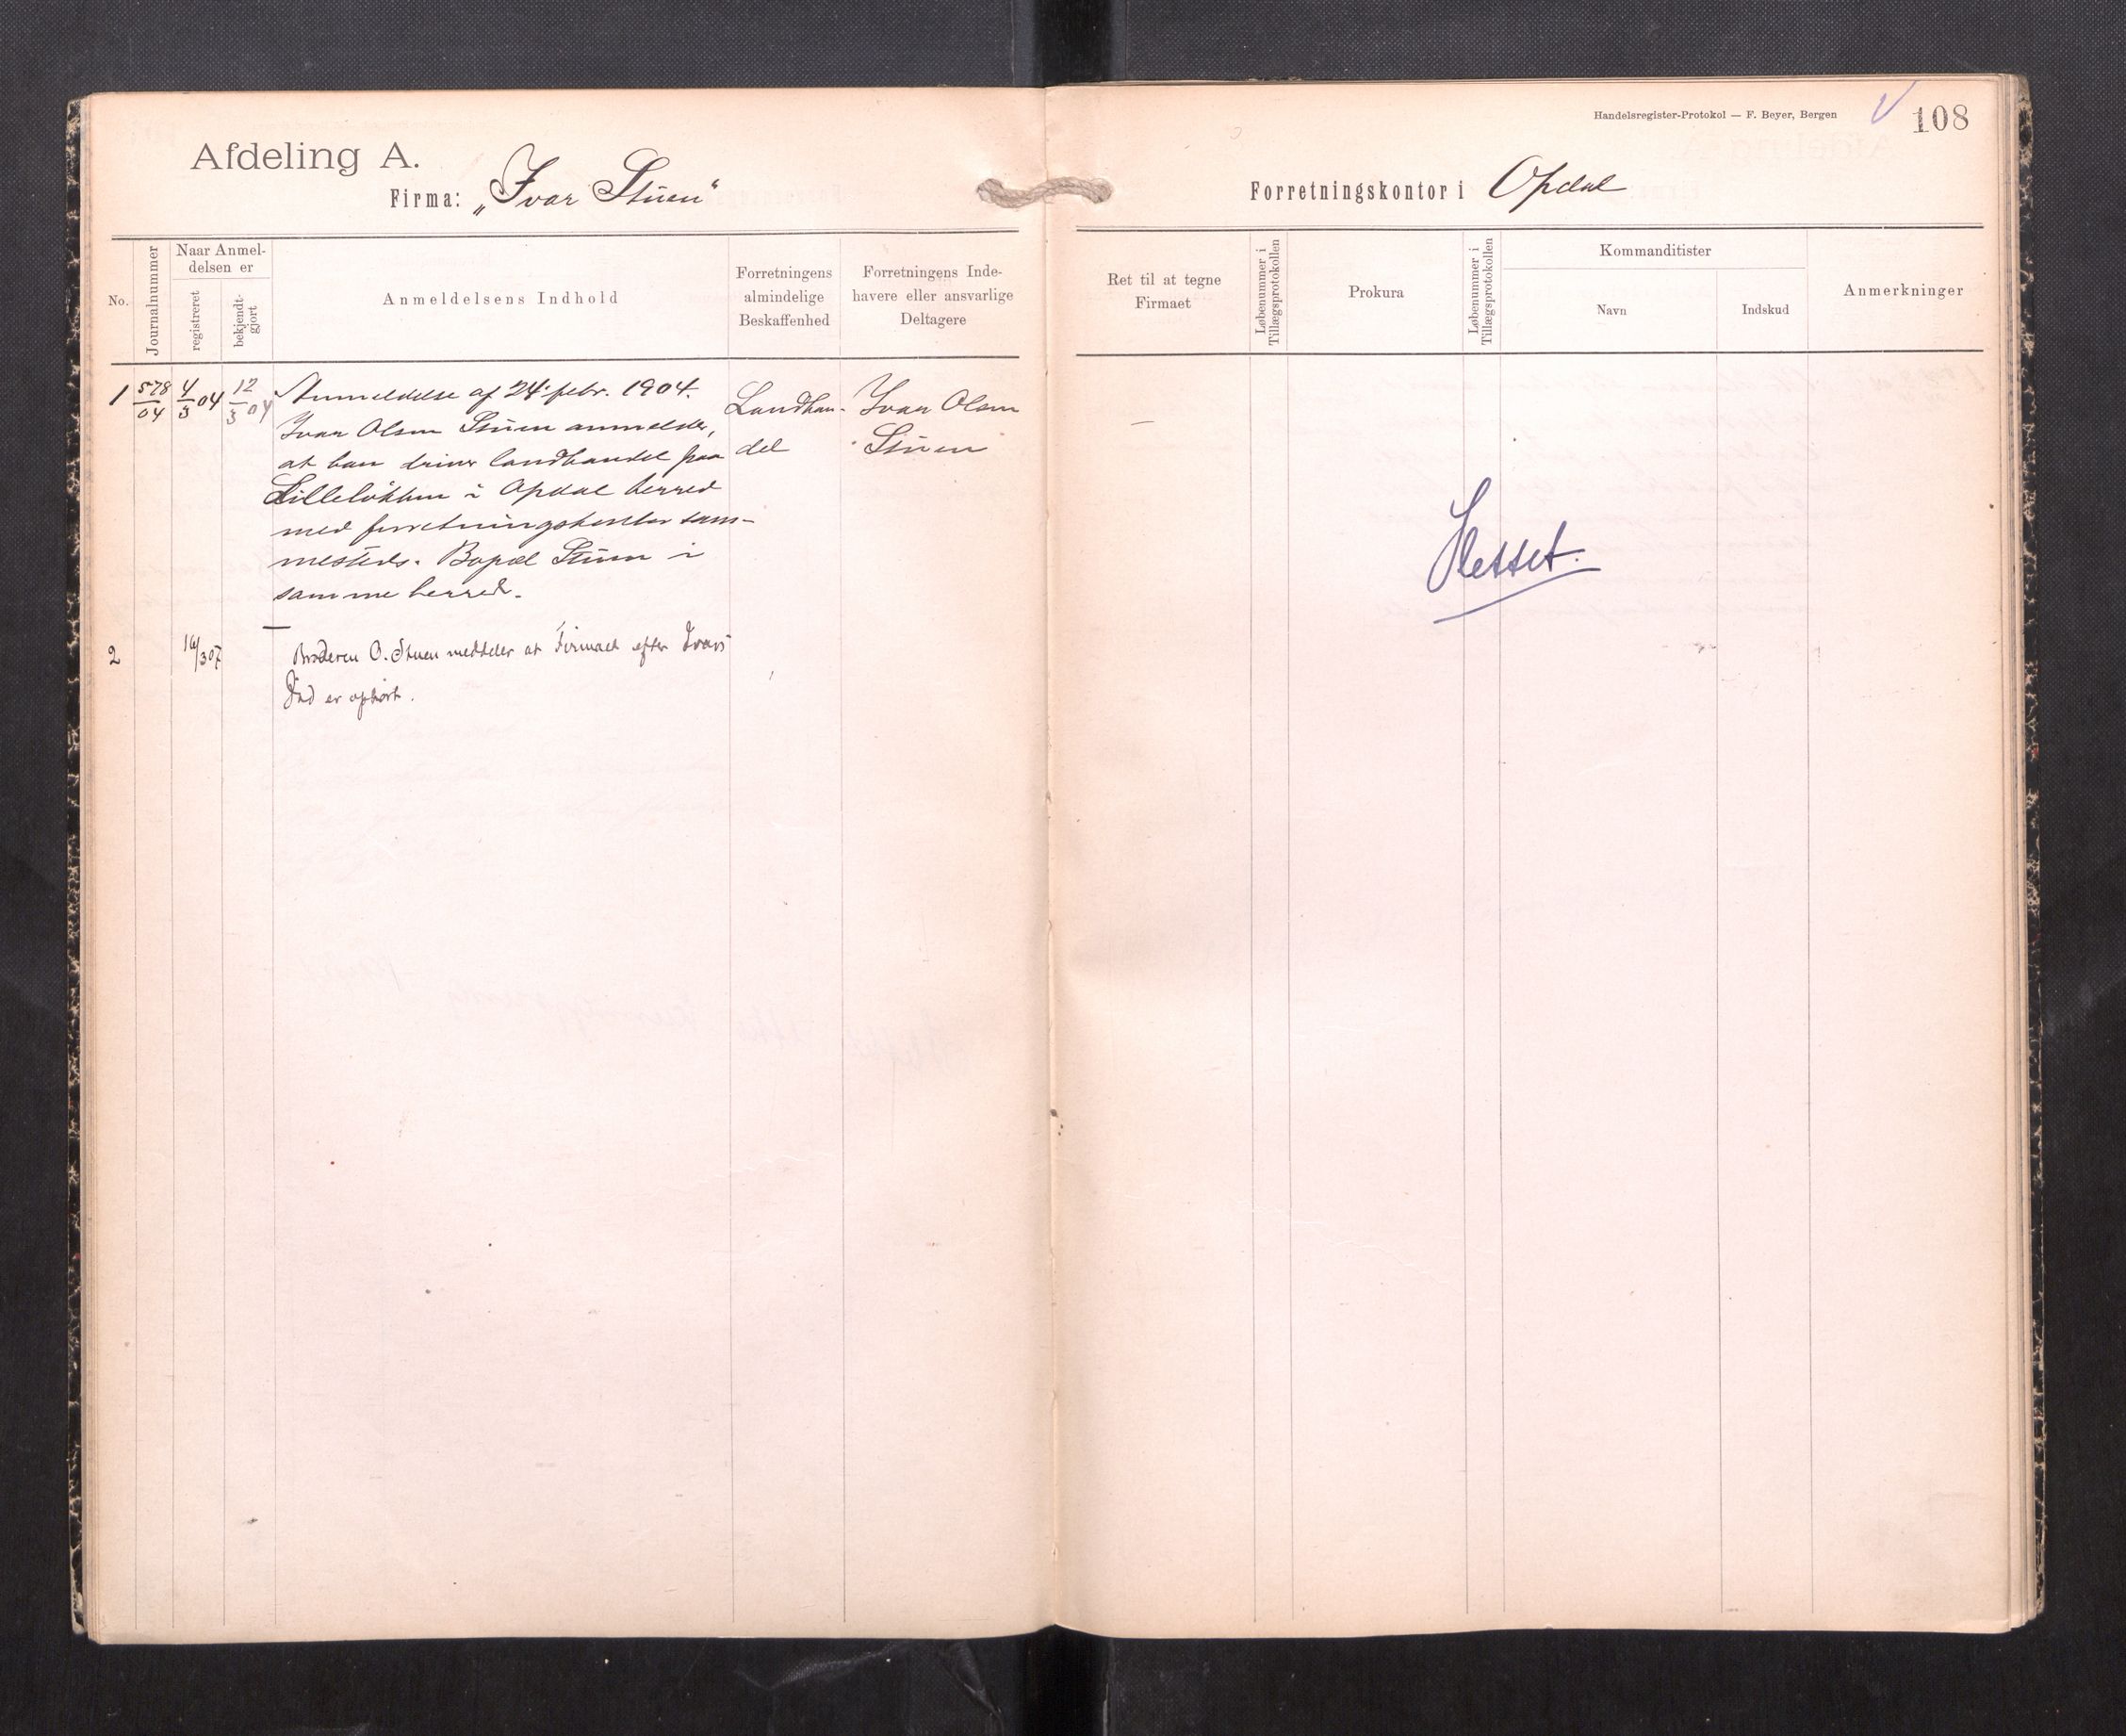 Afdeling A.
Firma: „Ivar Stuen“
No.
Journalnummer
Naar Anmel-
delsen er
registreret
bekjendt-
gjort
Anmeldelsens Indhold
Forretningens
almindelige
Beskaffenhed
Forretningens Inde-
havere eller ansvarlige
Deltagere
1 578/04 4/3 04 12/3 04
Anmeldelse af 24. febr. 1904.
Ivar Olsen Stuen anmelder,
at han driver landhandel paa
Lilleløkken i Opdal herred
med forretningskontor sam-
mesteds. Bopæl Stuen i
samme herred.
Landhan-
del
Ivar Olsen
Stuen
2 16/3 07
Broderen O. Stuen meddeler at Firmaet efter Ivars
Død er ophørt.
Handelsregister-Protokol — F. Beyer, Bergen
108
Forretningskontor i Opdal
Ret til at tegne
Firmaet
Løbenummer i
Tillægsprotokollen
Prokura
Løbenummer i
Tillægsprotokollen
Kommanditister
Navn
Indskud
Anmerkninger
—
Slettet.